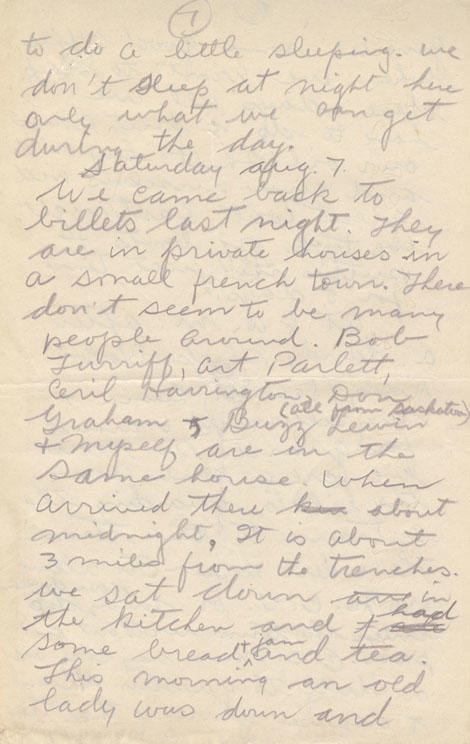 7
to do a little sleeping. we
don't sleep at night here
only what we can get
during the day.
Saturday aug. 7.
We came back to
billets last night. They
are in private houses in
a small french town. There
don't seem to be many
people around. Bob
Turriff, Art Parlett,
Ceril Harrington, Don
Graham & Buzz Lewin (all from Saskatoon)
+ myself are in the
same house. When
arrived there about
midnight, It is about
3 miles from the trenches.
we sat down in
the kitchen and had
some bread + jam and tea.
This morning an old
lady was down and